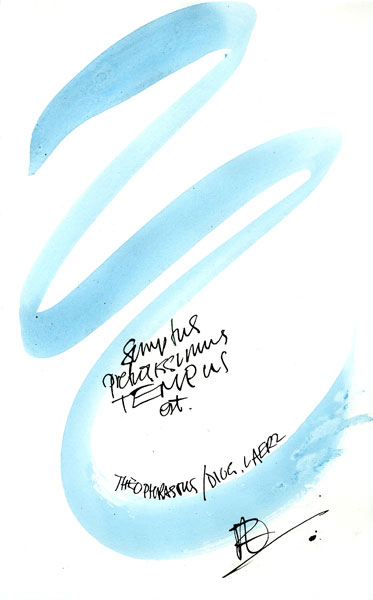 sumptus
pretiosissimus
TEMPUS
est.
THEOPHRASTUS/DIOG. LAERZ